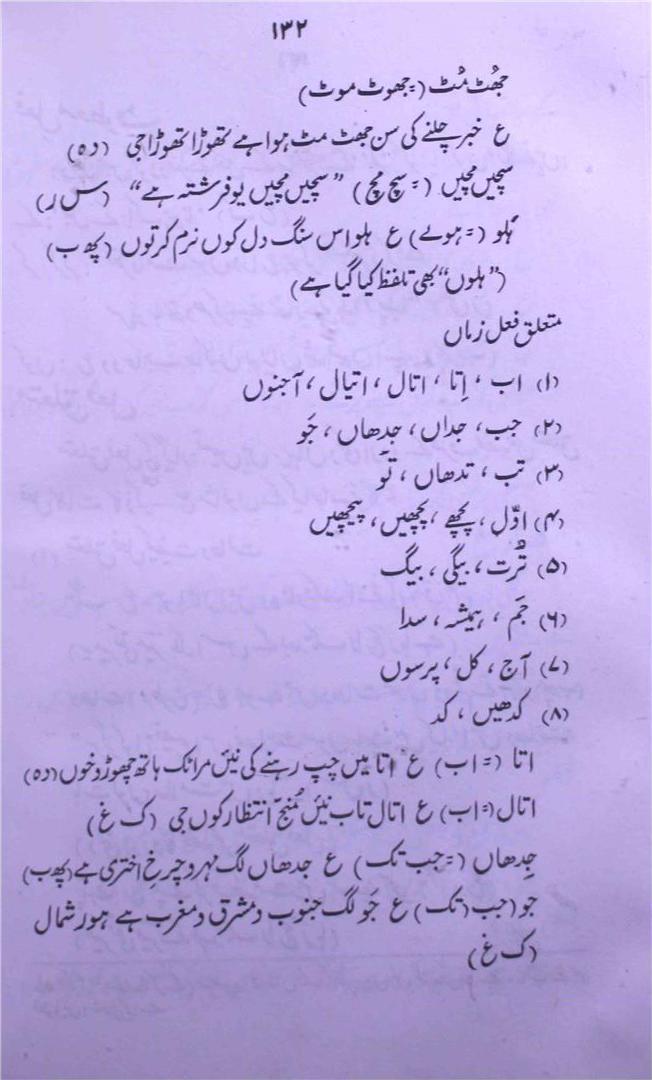 ۱۳۲
جھُٹ مُٹ (= جھوٹ موٹ)
ع خبر چلنے کی سن جھٹ مٹ ہوا ہے تھوڑا تھوڑا جی (دہ)
سچیں مچیں (= سچ مچ) ”سچیں مچیں یو فرشتہ ہے“ (س ر)
ہُلو (= ہولے) ع ہلو اس سنگ دل کوں نرم کر توں (پھ ب)
(”ہلوں“ بھی تلفظ کیا گیا ہے)
متعلق فعل زماں
(۱) اب ، اِتا ، اتال ، اتیال ، آجنوں
(۲) جب، جداں، جدھاں ، جَو
(۳) تب ، تدھاں ، تَو
(۴) اوّل ، پچھے ، پچھیں ، پیچھیں
(۵) تُرت ، بیگی ، بیگ
(۶) جَم ، ہمیشہ ، سدا
(۷) آج ، کل ، پرسوں
(۸) کدھیں ، کد
اتا (= اب) ع اتا میں چپ رہنے کی نیئں مرا نک ہاتھ چھوڑو خوں (دہ)
اتال (= اب) ع اتال تاب نیئں مُنجّ انتظار کوں جی (ک غ)
جِدھاں (= جب تک) ع جدھاں لگ مہر و چرخِ اختری ہے (پھ ب)
جو (جب (تک) ع جَو لگ جنوب و مشرق و مغرب ہے ہور شمال
(ک غ)